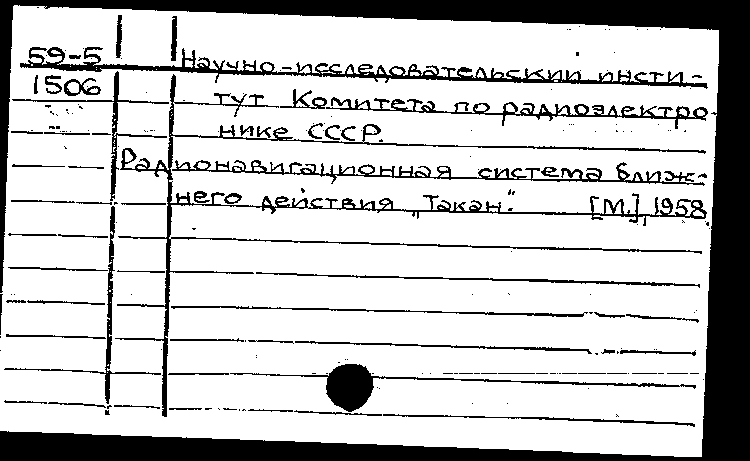 59-5
1506
Научно-исследовательский инсти-
тут Комитета по радиоэлектро-
нике СССР.
Радионавигационная система ближ-
него действия „Такан“. [М.], 1958